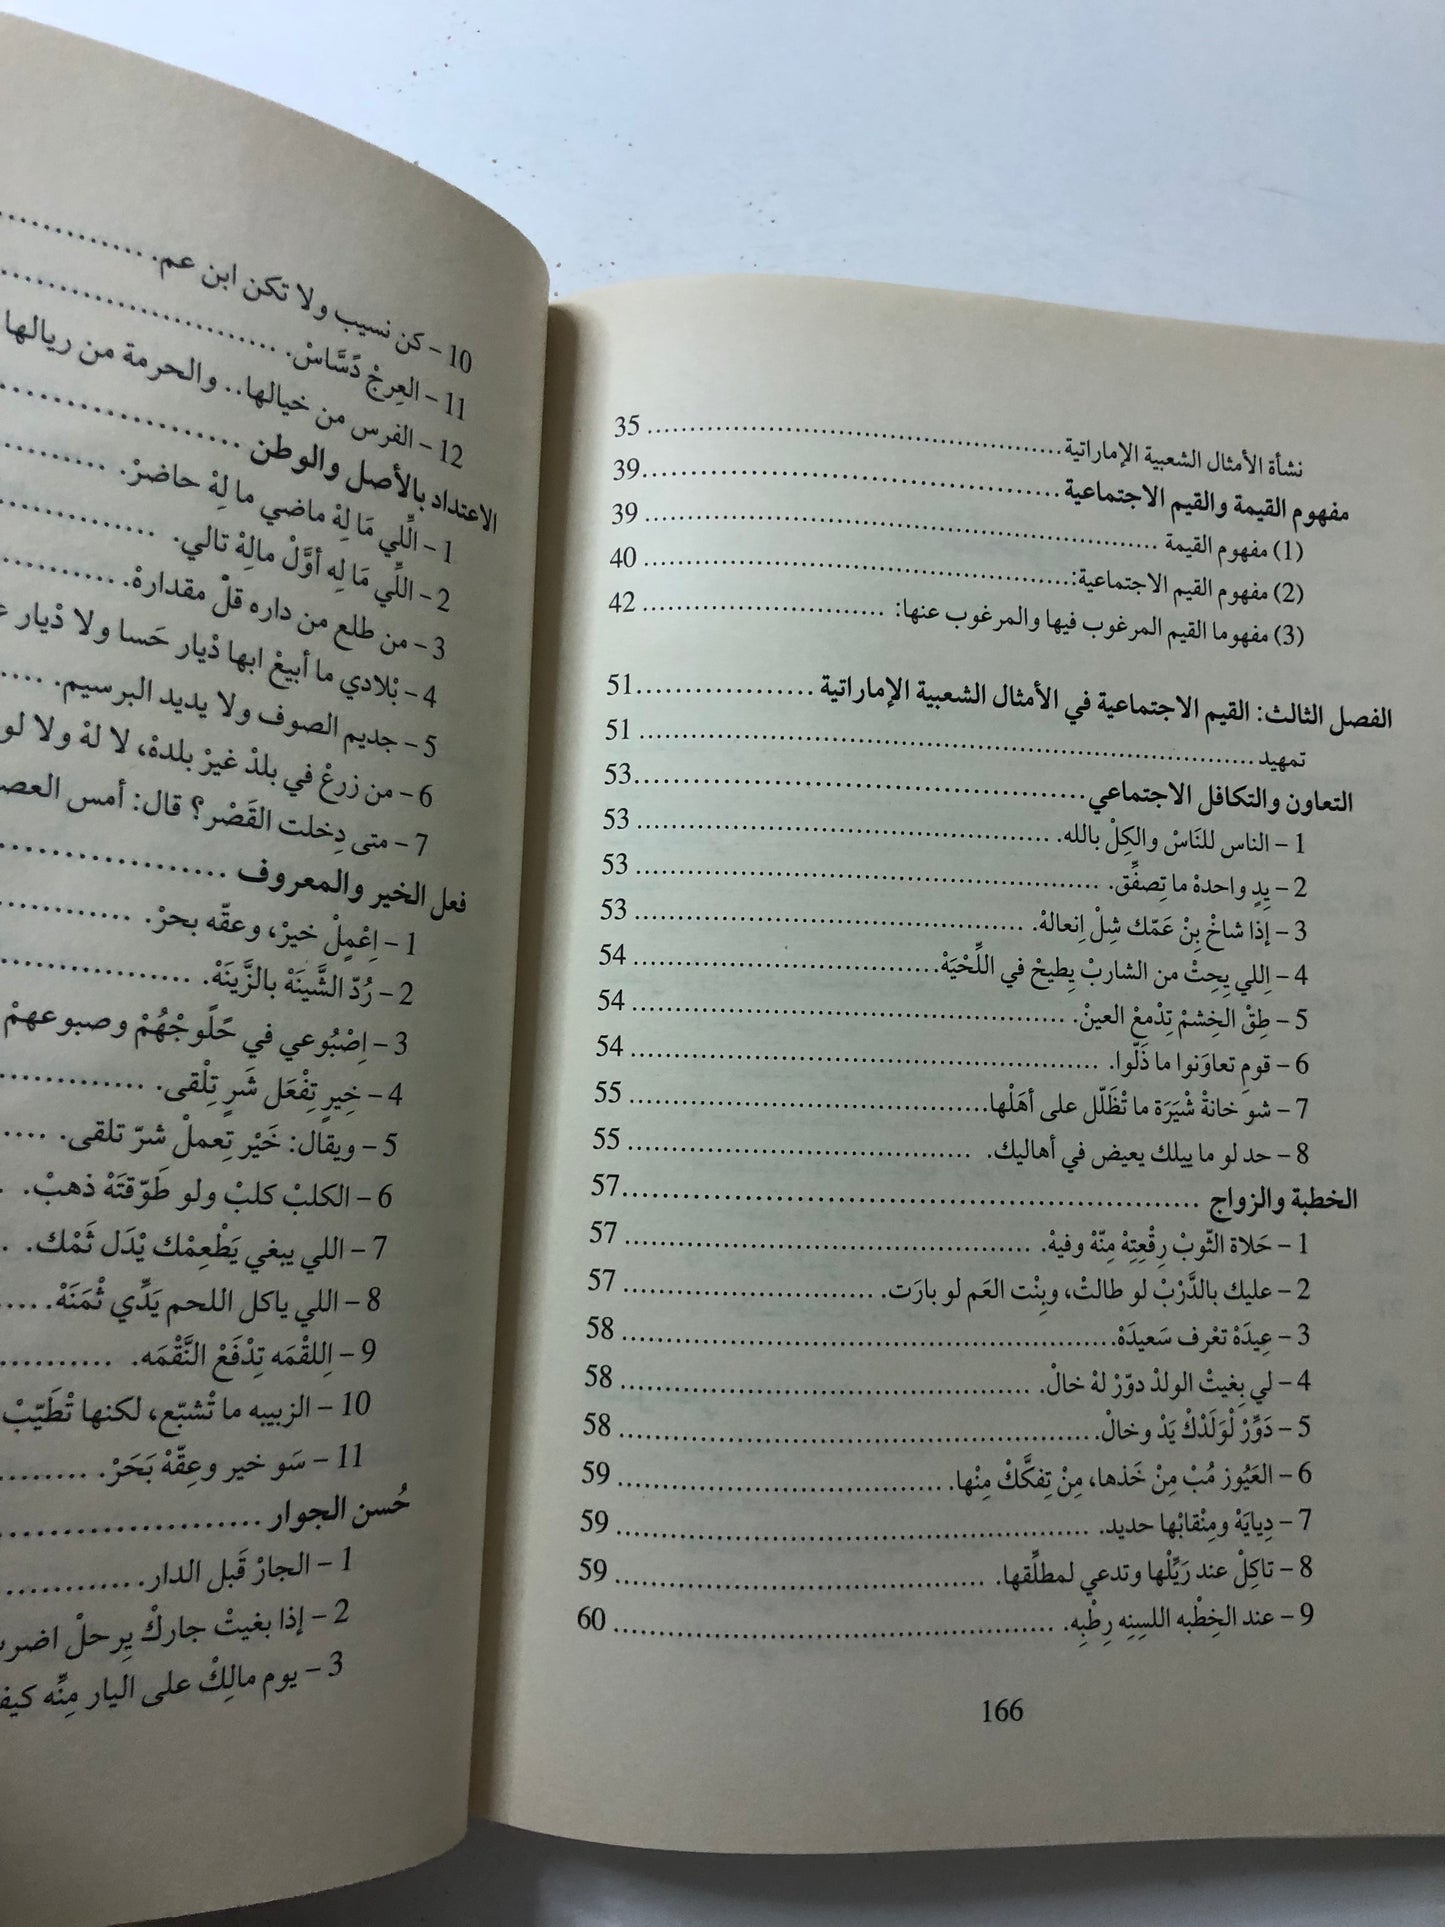 نشأة الأمثال الشعبية الإماراتية ........ 35
مفهوم القيمة والقيم الاجتماعية ........ 39
(1) مفهوم القيمة ........ 39
(2) مفهوم القيم الاجتماعية: ........ 40
(3) مفهوما القيم المرغوب فيها والمرغوب عنها: ........ 42
الفصل الثالث: القيم الاجتماعية في الأمثال الشعبية الإماراتية ........ 51
تمهيد ........ 51
التعاون والتكافل الاجتماعي ........ 53
1 – الناس للنَاسْ والكِلْ بالله. ........ 53
2 – يِدٍ واحدهْ ما تِصفِّق. ........ 53
3 – إذا شاخْ بِنْ عَمّك شِلْ اِنعالهْ. ........ 53
4 – اِللي يِحِتْ من الشاربْ يِطيحْ في اللِّحْيَهْ. ........ 54
5 – طِقْ الخِشمْ تِدْمعْ العينْ. ........ 54
6 – قومِ تعاوَنوا ما ذَلّوا. ........ 54
7 – شو خانةْ شْيَرَة ما تْظَلّل على أهَلْها. ........ 55
8 – حد لو ما ييلك يعيض في أهاليك. ........ 55
الخطبة والزواج ........ 57
1 – حَلاة الثّوبْ رِقْعِتِهْ مِنّهْ وفيهْ. ........ 57
2 – عليك بالدَّرْبْ لو طالتْ، وبِنْت العَم لو بارَت. ........ 57
3 – عِيدَهْ تعْرف سَعيدَهْ. ........ 58
4 – لي بِغيتْ الولدْ دوّرْ لهْ خالْ. ........ 58
5 – دَوِّرْ لْوَلَدْكْ يَدْ وخالْ. ........ 58
6 – العَيُوز مُبْ مِنْ خَذها، مِنْ تِفكَّكْ مِنْها. ........ 59
7 – دِيايَهْ ومِنْقابْها حديد. ........ 59
8 – تاكِلْ عند رَيّلْها وتدعي لمطلِّقها. ........ 59
9 – عند الخِطْبه اللسِنِه رِطْبِه. ........ 60
166
10 – كن نسيب ولا تكن ابن عم. ........
11 – العِرجْ دَسَّاسْ. ........
12 – الفرس من خيالها.. والحرمة من ريالها
الاعتداد بالأصل والوطن ........
1 – الِّلي مَا لِهْ ماضي ما لِهْ حاضرْ. ........
2 – اللِّي مَا لِه أوَّلْ مالِهْ تالي. ........
3 – من طلع من داره قلْ مقدارهْ. ........
4 – بْلادي ما أبيعْ ابها دْيار حَسا ولا دْيار
5 – جديم الصوف ولا يديد البرسيم. ........
6 – من زرعْ في بلدْ غيرْ بلدهْ، لا لهْ ولا
7 – متى دِخلت القَصْر؟ قال: أمس
فعل الخير والمعروف ........
1 – اِعْمِلْ خيرْ، وعقّه بحرْ. ........
2 – رُدّ الشَّينَهْ بالزَّينَهْ. ........
3 – اِصْبُوعي في حَلْوجْهُمْ وصبوعهمْ
4 – خِيرٍ تِفْعَل شَرٍ تِلْقى. ........
5 – ويقال: خَيْر تِعملْ شرّ تلقى. ........
6 – الكلبْ كلبْ ولو طَوّقتَهْ ذهبْ. ........
7 – اللي يبغي يَطْعِمْك يْدَل ثَمْك. ........
8 – اللي ياكل اللحم يَدِّي ثْمَنَهْ. ........
9 – اِللقْمَه تِدْفَعْ النَّقْمَه. ........
10 – الزبيبه ما تْشبّع، لكنها تْطَيّبْ
11 – سَو خير وعِقّهْ بَحَرْ. ........
حُسن الجوار ........
1 – الجارْ قَبل الدار. ........
2 – إذا بغيتْ جاركْ يِرحلْ
3 – يوم مالِكْ على اليار مِنِّه